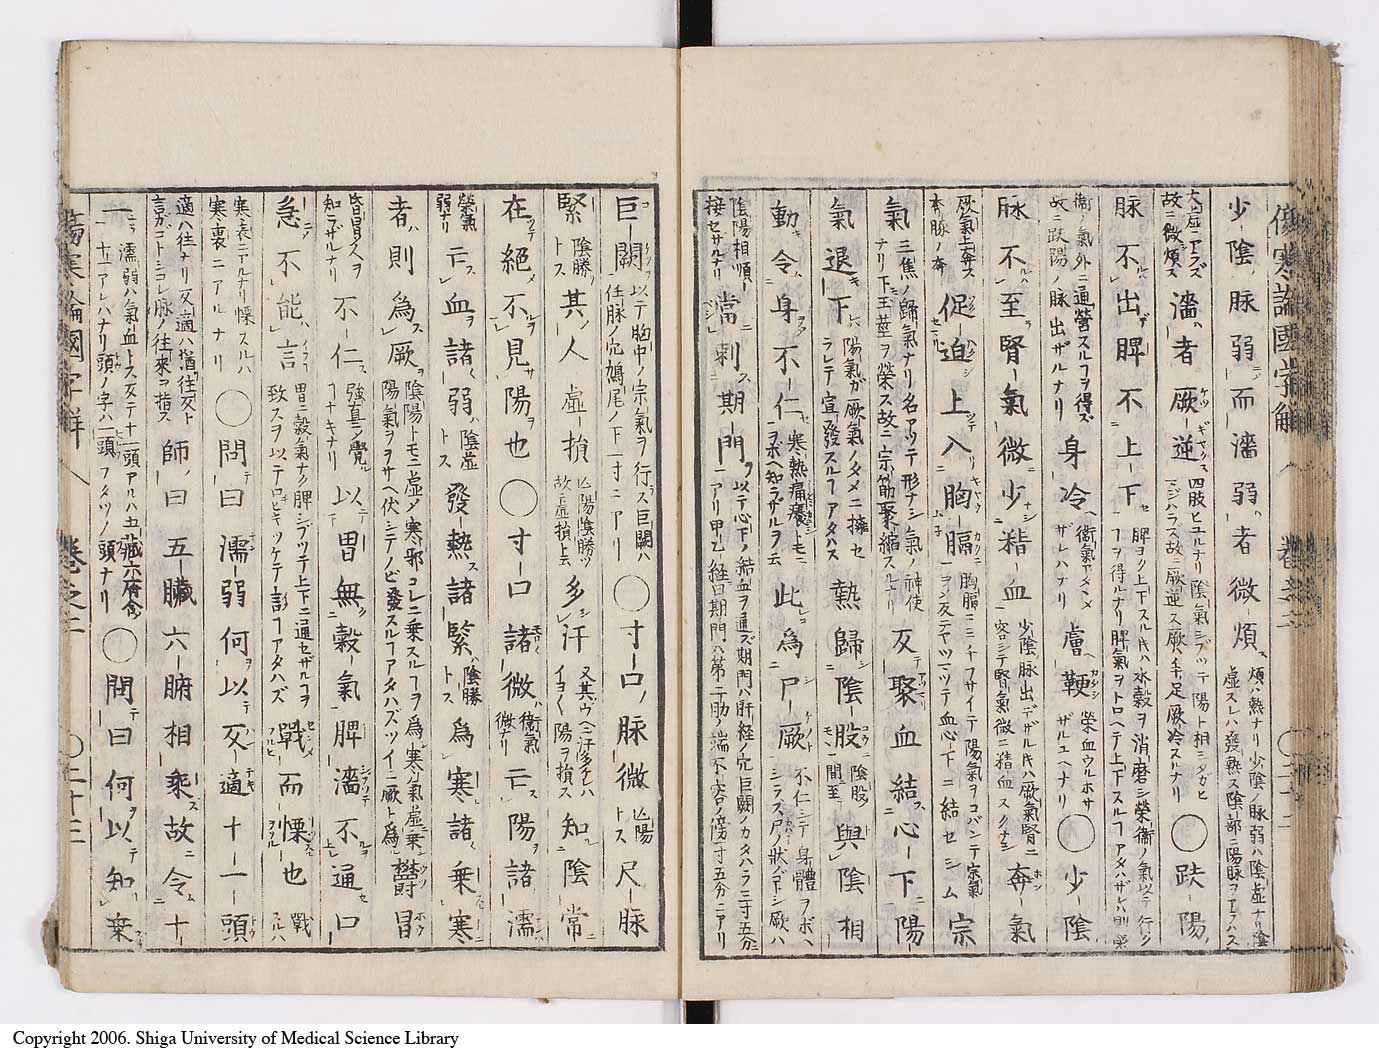 傷寒論國字解 八 卷之二 〇二十二
少陰脉弱而濇弱者微煩 煩ハ熱ナリ少陰ノ脉弱ハ陰虚ナリ陰虚スレハ發熱ス陰部ニ陽脉ヲアラハス
大虚ニアラズ故ニ微煩ス 濇者厥逆 四肢ヒユルナリ陰氣シブッテ陽ト相ミタガヒマジハラズ故ニ厥逆ス厥ハ手足厥冷スルナリ 〇趺陽
脉不出脾不上下 脾ヨク上下スルキハ水穀ヲ消磨シ榮衞ノ氣以テ行ク
衞ノ氣外ニ通營スルヿヲ得ズ故ニ趺陽ノ脉出ザルナリ 身冷 衞氣アタヽメザレハナリ 膚鞕 榮血ウルホサザルユヘナリ 〇少陰
脉不至腎氣微少精血 少陰脉出デザルキハ厥氣腎ニ容シテ腎氣微ニ精血スクナシ 奔氣
厥氣上奔ス本ト脉ノ奔 促迫上入胸膈 宗
氣 三焦ノ歸氣ナリ名アッテ形ナシ氣ノ神使ナリ下玉莖ヲ榮ス故ニ宗筋聚縮スルナリ 反聚血結心下陽
氣退下 陽氣ガ厥氣ノタメニ擁セラレテ宣發スルヿアタハス 熱歸陰股 陰股モヽノ間 與陰相
動令身不仁 寒熱痛癢トモニヲボヘ知ラザルヲ云 此爲尸厥 不仁ニテ身體ヲボヘシラズ尸ノ狀ノゴトシ厥ハ
陰陽相順接セザルナリ 當刺期門 以テ心下ノ結血ヲ通ズ期門ハ肝經ノ穴巨闕ノカタハラ三寸五分ニアリ甲乙經曰期門ハ第二肋ノ端不容ノ傍一寸五分ニアリ
巨闕 以テ胸中ノ宗氣ヲ行ラス巨闕ハ任脉ノ穴鳩尾ノ下一寸ニアリ 〇寸口ノ脉微 亡陽トス 尺脉
緊 陰勝トス 其人虚損 亡陽陰勝ツ故ニ虚損ト云 多汗 又其ウヘニ汗多ケレハイヨ〱陽ヲ損ス 知陰常
在絶不見陽也 〇寸口諸微 衞氣微ナリ 亡陽諸濡
榮氣弱ナリ 亡血諸弱 陰虚トス 發熱諸緊 陰勝トス 爲寒諸乘寒
者則爲厥 陰陽トモニ虚メ寒邪コレニ乘スルヲ爲寒氣虚乘シ陽氣ヲヲサヘ伏シテノビ發スルヿアタハズツイニ厥ト為ル 欝冒
昏冒人ヲ知ラザルナリ 不仁 強直シテ覺ルヿナキナリ 以胃無穀氣脾濇不通口
急不能言 胃ニ穀氣ナク脾シブッテ上下ニ通セザルヿヲ致スヲ以テ口ヒキツケテ言フヿアタハズ 戰而慄也 戰スルハ
寒表ニアルナリ慄スルハ寒裏ニアルナリ 〇問曰濡弱何以反適十一頭
適ハ往ナリ反適ハ猶往反ト言ガコトシコレ脉ノ往來ヲ指ス 師曰五臟六腑相乘故令十
一 濡弱ハ氣血トス反テ十一頭アルハ五臟六府合メ十一アレハナリ頭ノ字ハ一頭ヲフタツノ頭ナリ 〇問曰何以知乘
傷寒論國字解 八 卷之二 〇二十三
Copyright 2006. Shiga University of Medical Science Library